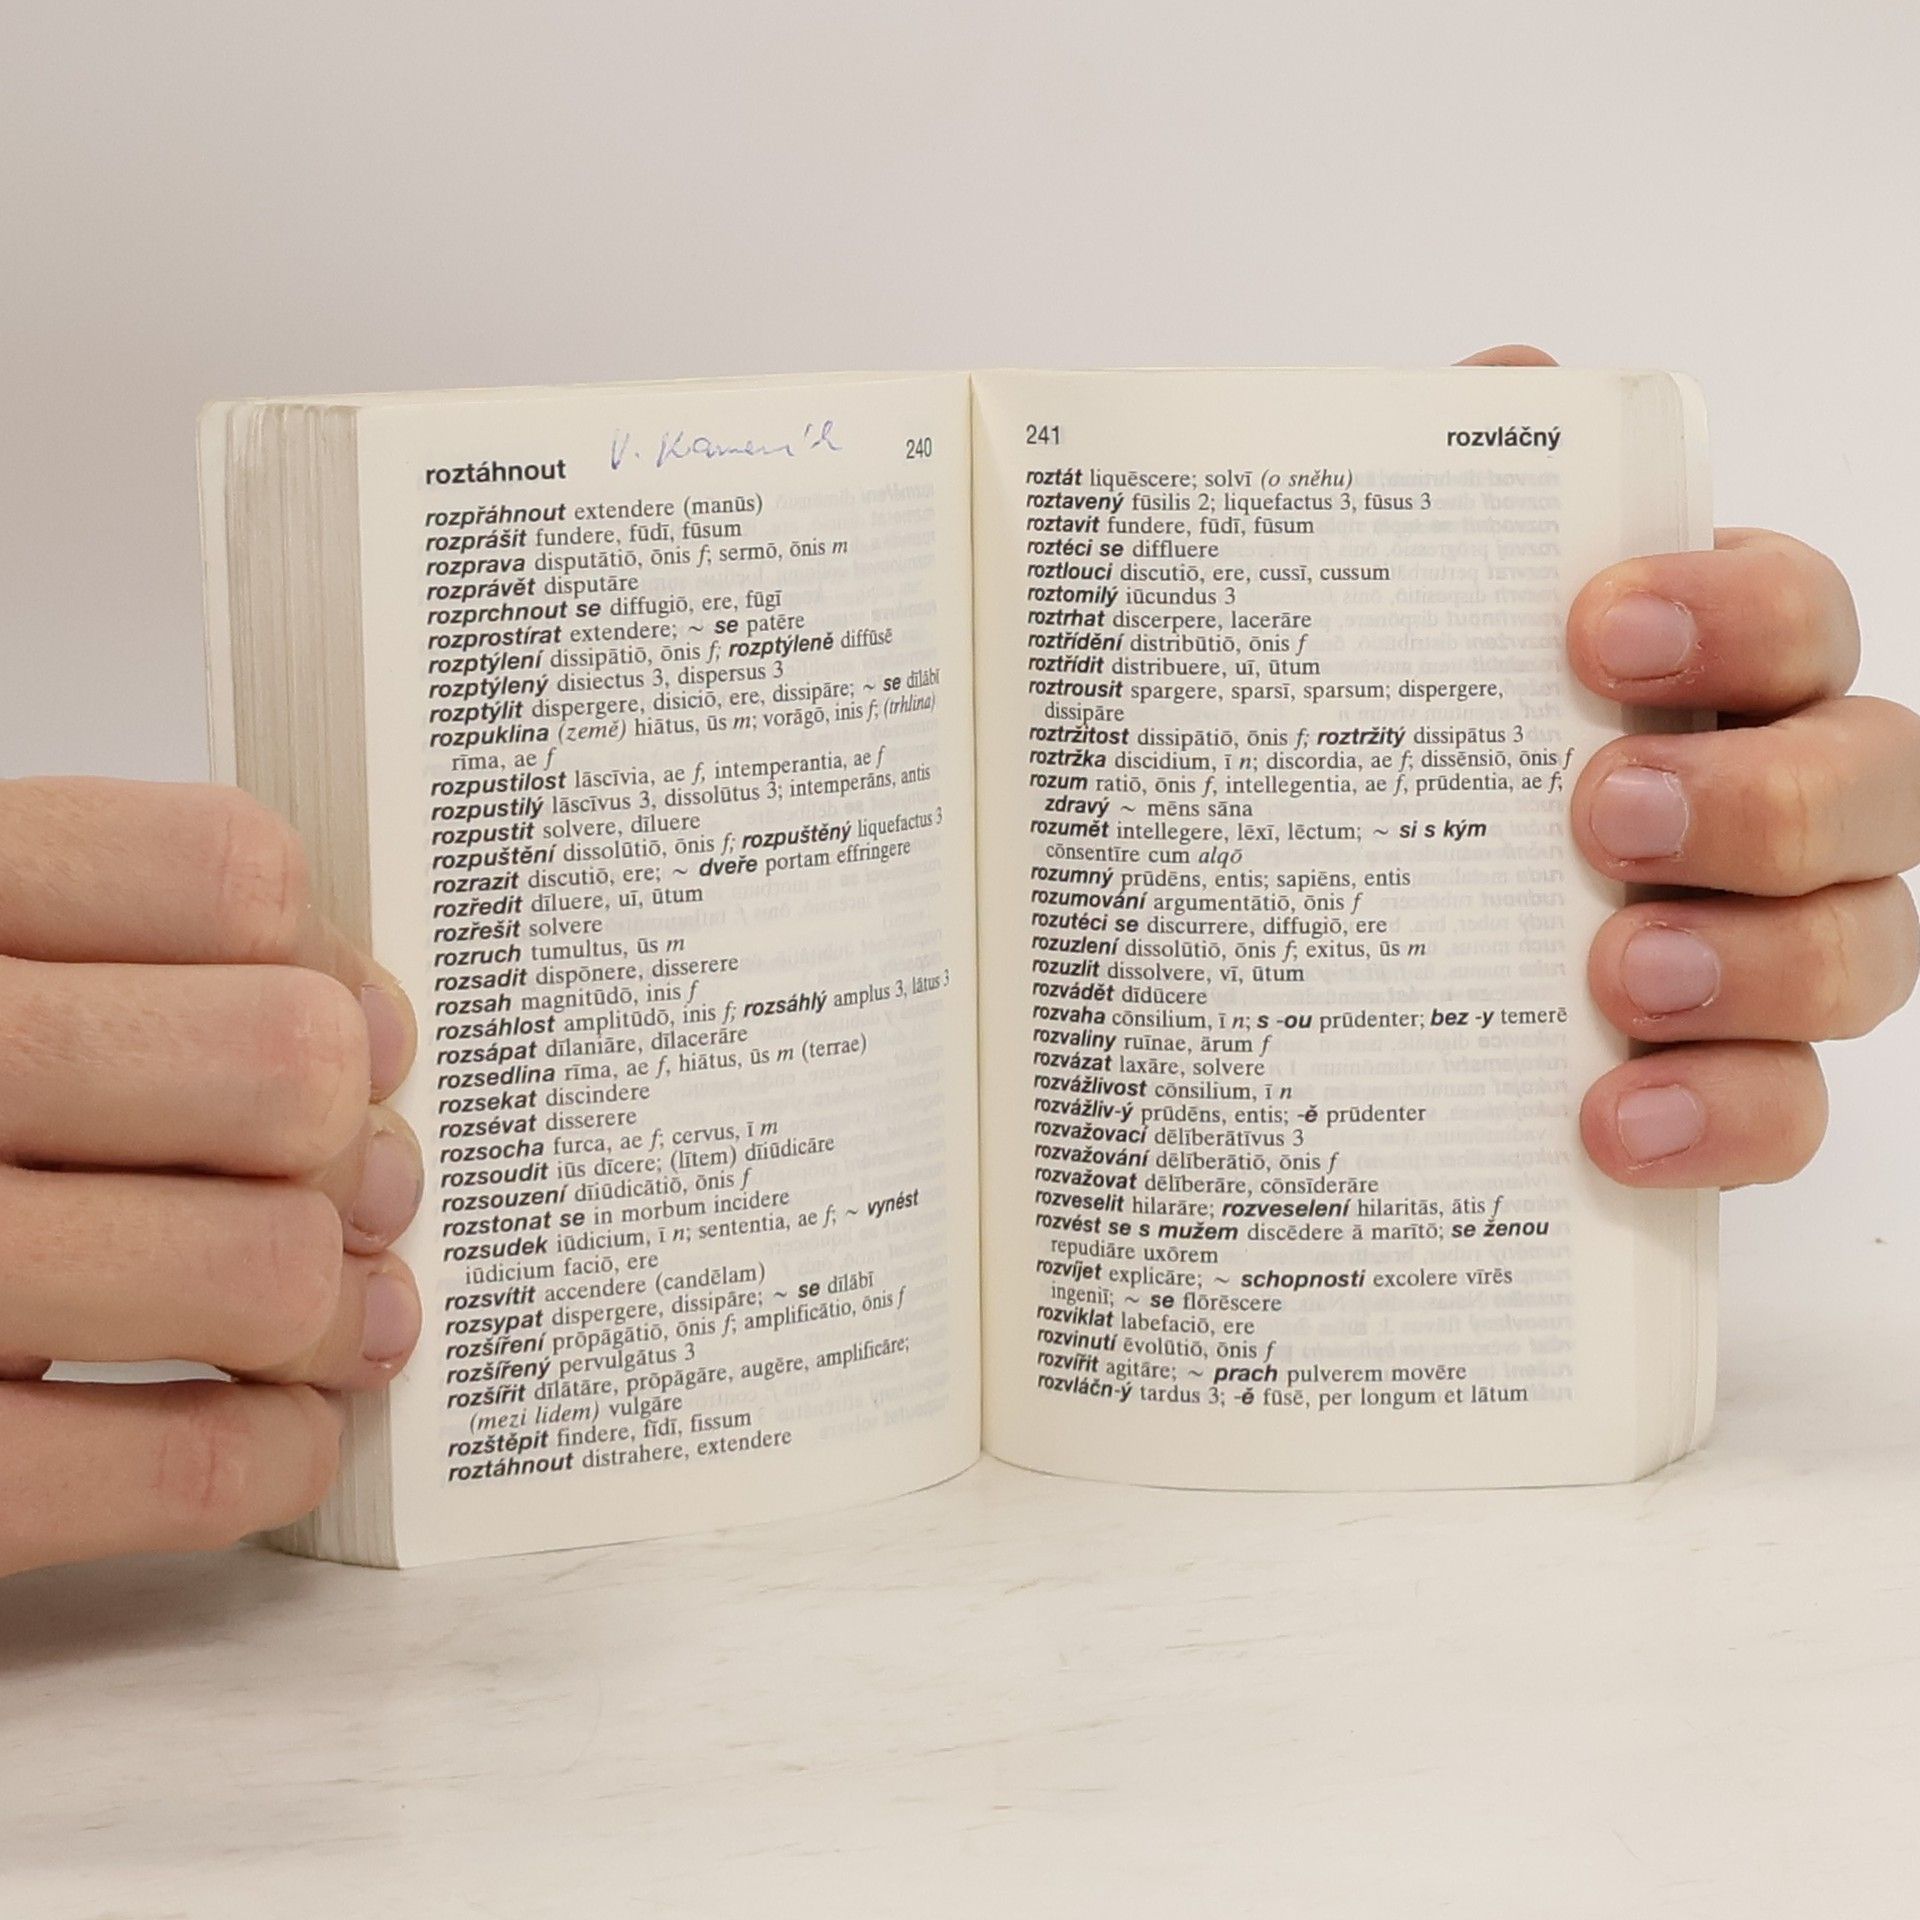 roztáhnout V. 240
rozpřáhnout extendere (manūs)
rozprášit fundere, fūdī, fūsum
rozprava disputātiō, ōnis f; sermō, ōnis m
rozprávět disputāre
rozprchnout se diffugiō, ere, fūgī
rozprostírat extendere; ~ se patēre
rozptýlení dissipātiō, ōnis f; rozptýleně diffūsē
rozptýlený disiectus 3, dispersus 3
rozptýlit dispergere, disiciō, ere, dissipāre; ~ se dīlābī
rozpuklina (země) hiātus, ūs m; vorāgō, inis f; (trhlina)
rīma, ae f
rozpustilost lāscīvia, ae f, intemperantia, ae f
rozpustilý lāscīvus 3, dissolūtus 3; intemperāns, antis
rozpustit solvere, dīluere
rozpuštění dissolūtiō, ōnis f; rozpuštěný liquefactus 3
rozrazit discutiō, ere; ~ dveře portam effringere
rozředit dīluere, uī, ūtum
rozřešit solvere
rozruch tumultus, ūs m
rozsadit dispōnere, disserere
rozsah magnitūdō, inis f
rozsáhlost amplitūdō, inis f; rozsáhlý amplus 3, lātus 3
rozsápat dīlaniāre, dīlacerāre
rozsedlina rīma, ae f, hiātus, ūs m (terrae)
rozsekat discindere
rozsévat disserere
rozsocha furca, ae f; cervus, ī m
rozsoudit iūs dīcere; (lītem) dīiūdicāre
rozsouzení dīiūdicātiō, ōnis f
rozstonat se in morbum incidere
rozsudek iūdicium, ī n; sententia, ae f; ~ vynést
iūdicium faciō, ere
rozsvítit accendere (candēlam)
rozsypat dispergere, dissipāre; ~ se dīlābī
rozšíření prōpāgātiō, ōnis f; amplificātio, ōnis f
rozšířený pervulgātus 3
rozšířit dīlātāre, prōpāgāre, augēre, amplificāre;
(mezi lidem) vulgāre
rozštěpit findere, fīdī, fissum
roztáhnout distrahere, extendere
241 rozvláčný
roztát liquēscere; solvī (o sněhu)
roztavený fūsilis 2; liquefactus 3, fūsus 3
roztavit fundere, fūdī, fūsum
roztéci se diffluere
roztlouci discutiō, ere, cussī, cussum
roztomilý iūcundus 3
roztrhat discerpere, lacerāre
roztřídění distribūtiō, ōnis f
roztřídit distribuere, uī, ūtum
roztrousit spargere, sparsī, sparsum; dispergere,
dissipāre
roztržitost dissipātiō, ōnis f; roztržitý dissipātus 3
roztržka discidium, ī n; discordia, ae f; dissēnsiō, ōnis f
rozum ratiō, ōnis f, intellegentia, ae f, prūdentia, ae f;
zdravý ~ mēns sāna
rozumět intellegere, lēxī, lēctum; ~ si s kým
cōnsentīre cum alqō
rozumný prūdēns, entis; sapiēns, entis
rozumování argumentātiō, ōnis f
rozutéci se discurrere, diffugiō, ere
rozuzlení dissolūtiō, ōnis f; exitus, ūs m
rozuzlit dissolvere, vī, ūtum
rozvádět dīdūcere
rozvaha cōnsilium, ī n; s -ou prūdenter; bez -y temerē
rozvaliny ruīnae, ārum f
rozvázat laxāre, solvere
rozvážlivost cōnsilium, ī n
rozvážliv-ý prūdēns, entis; -ě prūdenter
rozvažovací dēlīberātīvus 3
rozvažování dēlīberātiō, ōnis f
rozvažovat dēlīberāre, cōnsīderāre
rozveselit hilarāre; rozveselení hilaritās, ātis f
rozvést se s mužem discēdere ā marītō; se ženou
repudiāre uxōrem
rozvíjet explicāre; ~ schopnosti excolere vīrēs
ingeniī; ~ se flōrēscere
rozviklat labefaciō, ere
rozvinutí ēvolūtiō, ōnis f
rozvířit agitāre; ~ prach pulverem movēre
rozvláčn-ý tardus 3; -ě fūsē, per longum et lātum